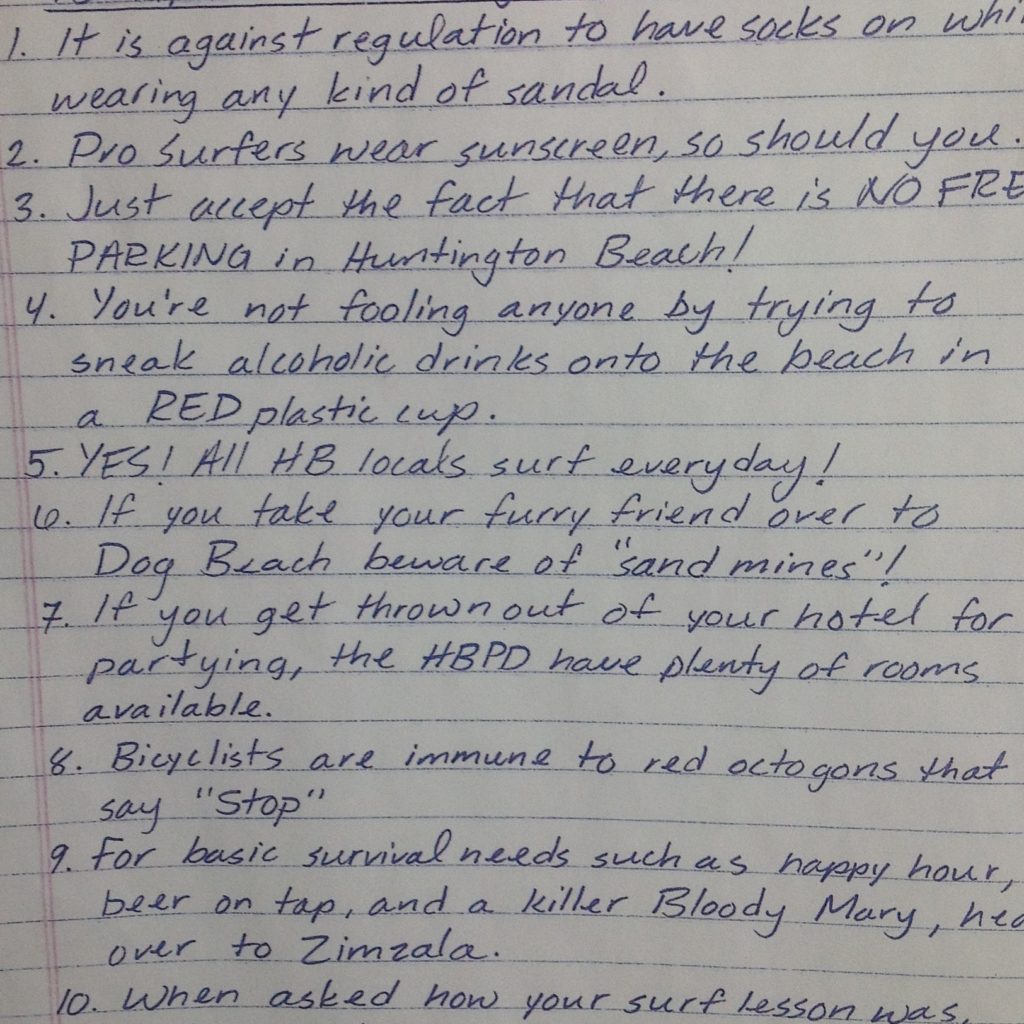 1. It is against regulation to have socks on whi
wearing any kind of sandal.
2. Pro Surfers wear sunscreen, so should you.
3. Just accept the fact that there is NO FREE
PARKING in Huntington Beach!
4. You're not fooling anyone by trying to
sneak alcoholic drinks onto the beach in
a RED plastic cup.
5. YES! All HB locals surf everyday!
6. If you take your furry friend over to
Dog Beach beware of "sand mines"!
7. If you get thrown out of your hotel for
partying, the HBPD have plenty of rooms
available.
8. Bicyclists are immune to red octogons that
say "Stop"
9. For basic survival needs such as happy hour,
beer on tap, and a killer Bloody Mary, hea
over to Zimzala.
10. When asked how your surf lesson was,